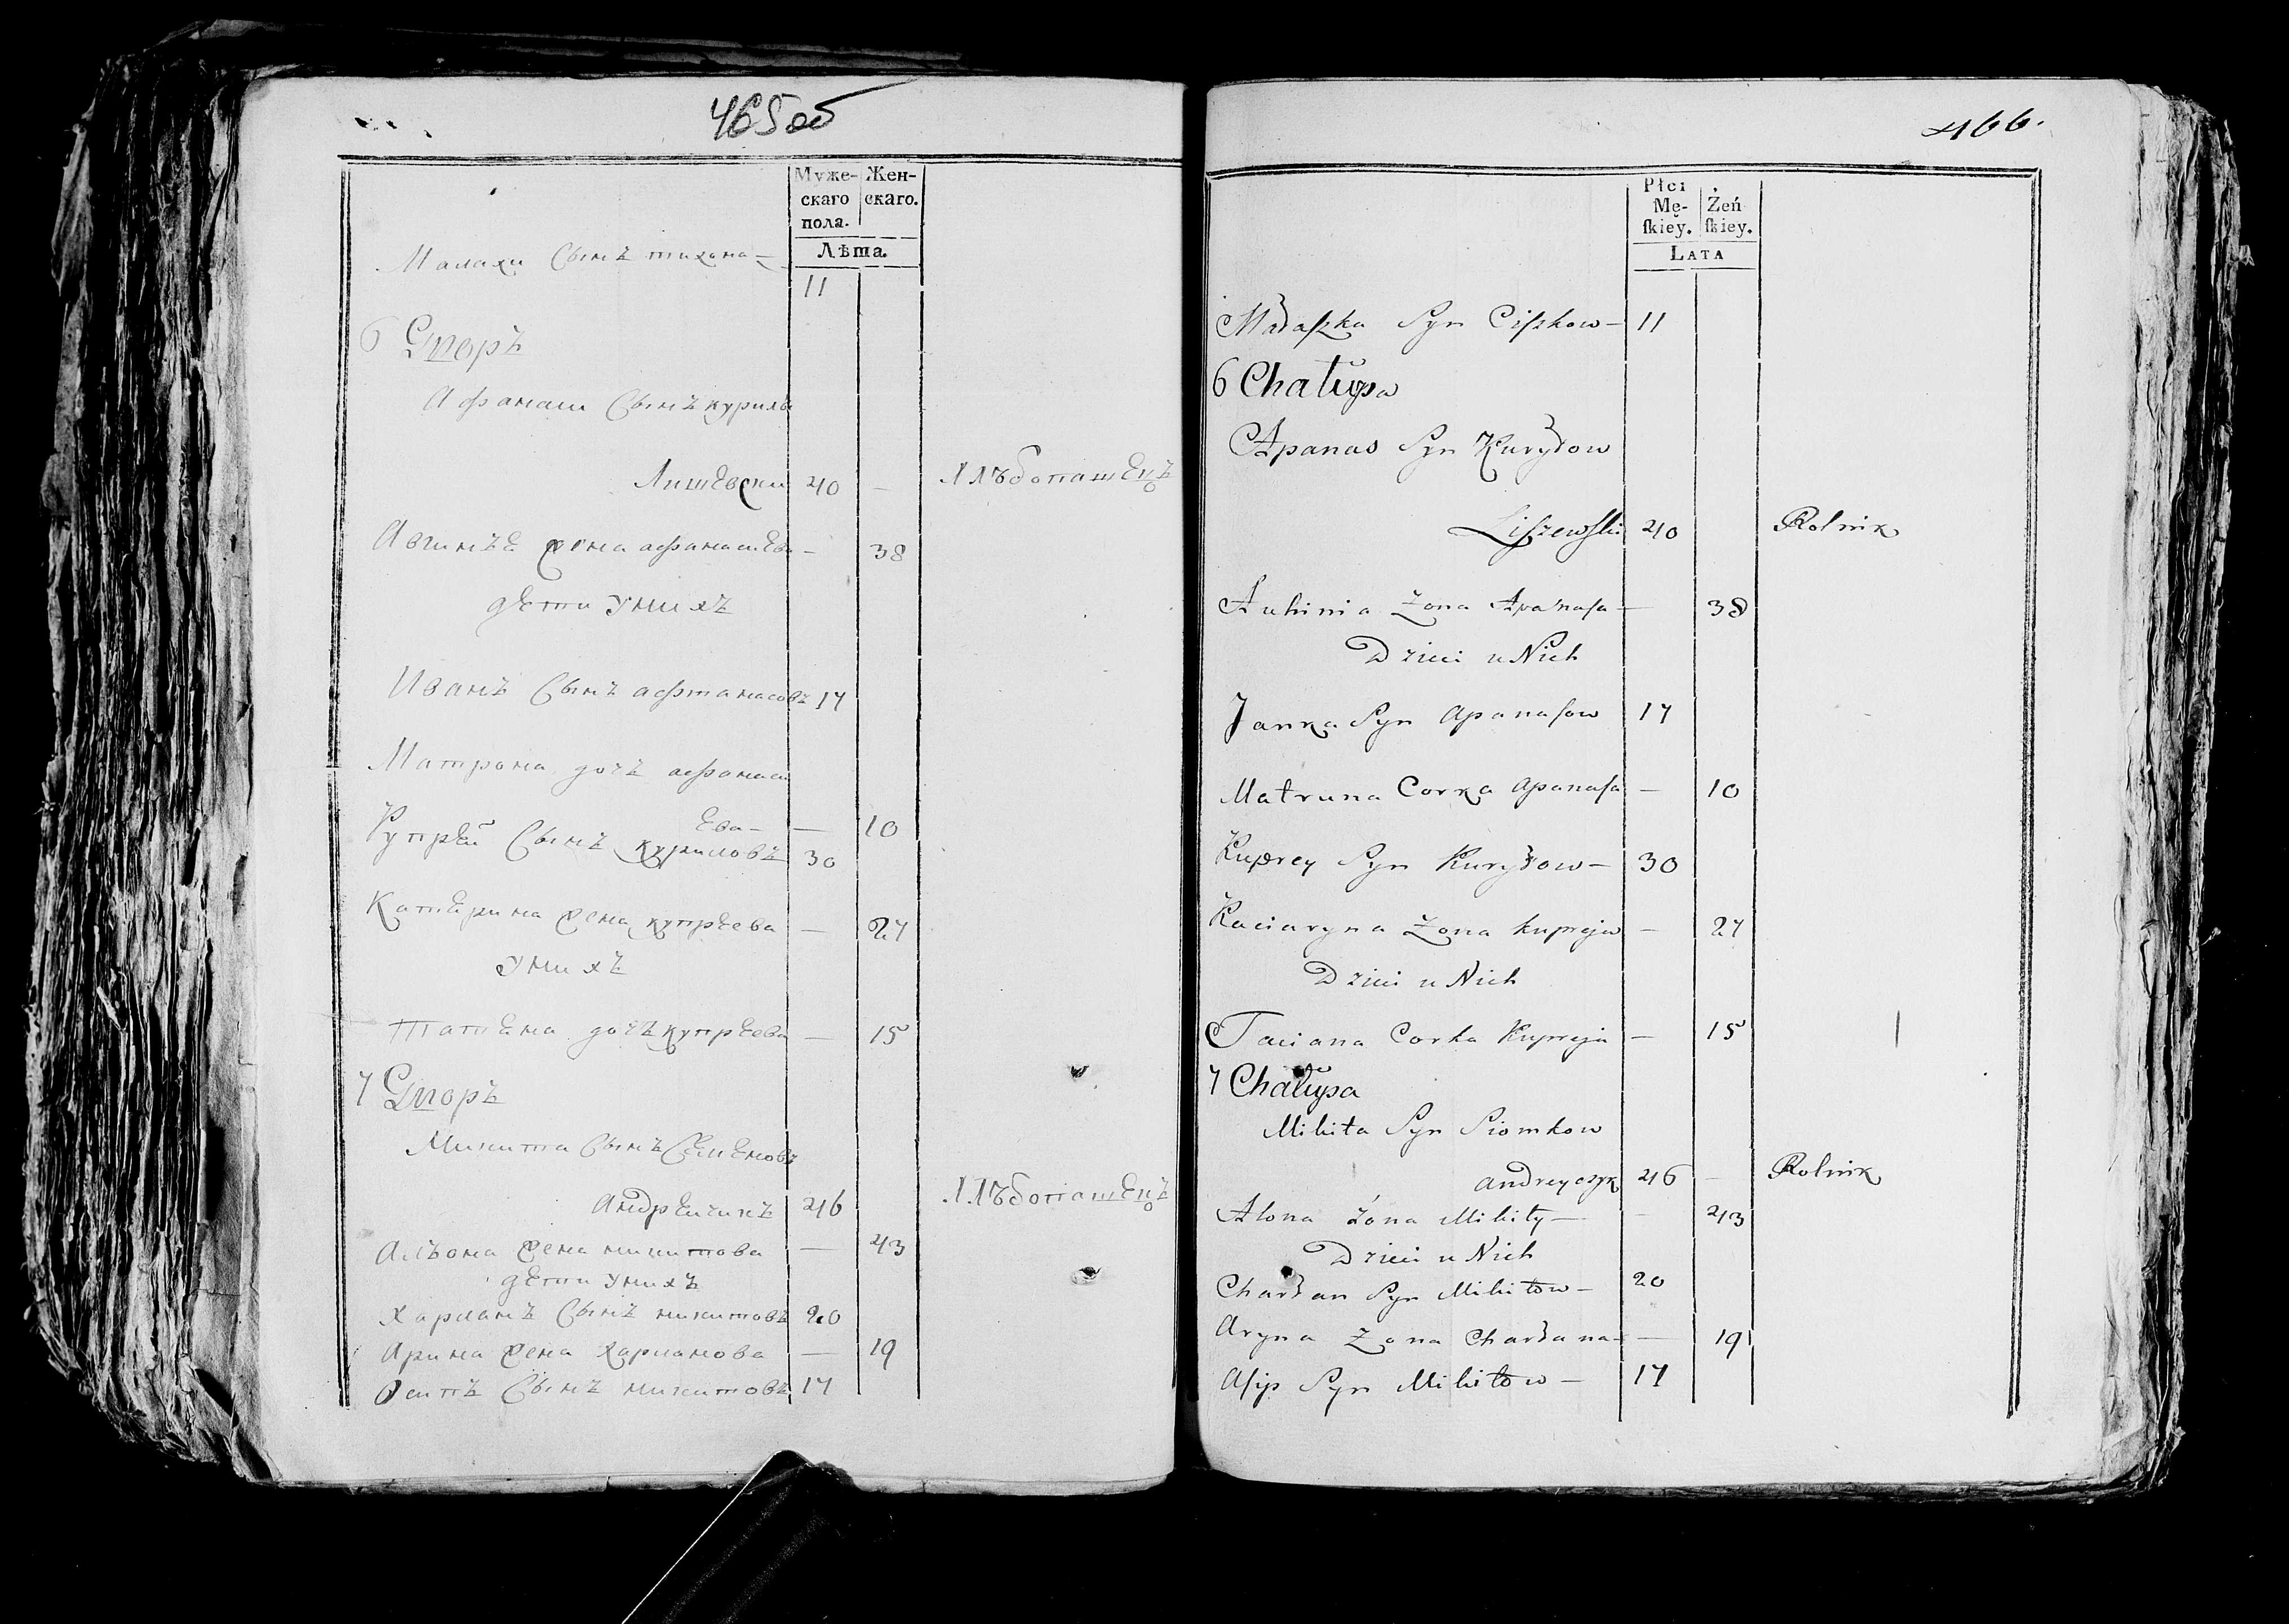 465об
Муже-
скаго
пола.
Жен-
скаго.
Лѣта.
Малахи Сынъ тихона —
11
6 Дворъ
Афанаси Сынъ курила
Лишевски 40 — Хлѣбопашецъ
Авгинья жена афанасиева — 38
дети у нихъ
Иванъ Сынъ афтанасовъ 17
Матрона дочъ афанаси
ева — — 10
Купрей Сынъ куриловъ 30
Катерина жена купреева — 27
у нихъ
Татиена дочъ купреева — 15
7 Дворъ
Микита Сынъ Семеновъ
Андрейчикъ 46 Хлѣбопашецъ
Альона жена микитова — 43
дети у нихъ
Харланъ Сынъ микитовъ 20
Арина жена Харланова — 19
Осипъ Сынъ микитовъ 17
466.
Płci
Mę-
ſkiey.
Żeń
ſkiey.
LATA
Małaſzka Syn Ciſzkow — 11
6 Chałupa
Apanas Syn Kuryłow
Liſzewſki 40 Rolnik
Auhinia Zona Apanaſa — 38
Dzieci u Nich
Janka Syn Apanaſow 17
Matruna Corka Apanaſa — 10
Kuprey Syn Kuryłow — 30
Kaciaryna Zona Kupreja — 27
Dzieci u Nich
Taciana Corka Kupreja — 15
7 Chałupa
Mikita Syn Siomkow
Andreyczyk 46 — Rolnik
Alona Żona Mikity — — 43
Dzieci u Nich
Charłan Syn Mikitow — 20
Aryna Zona Charłana — — 19
Aſip Syn Mikitow — 17